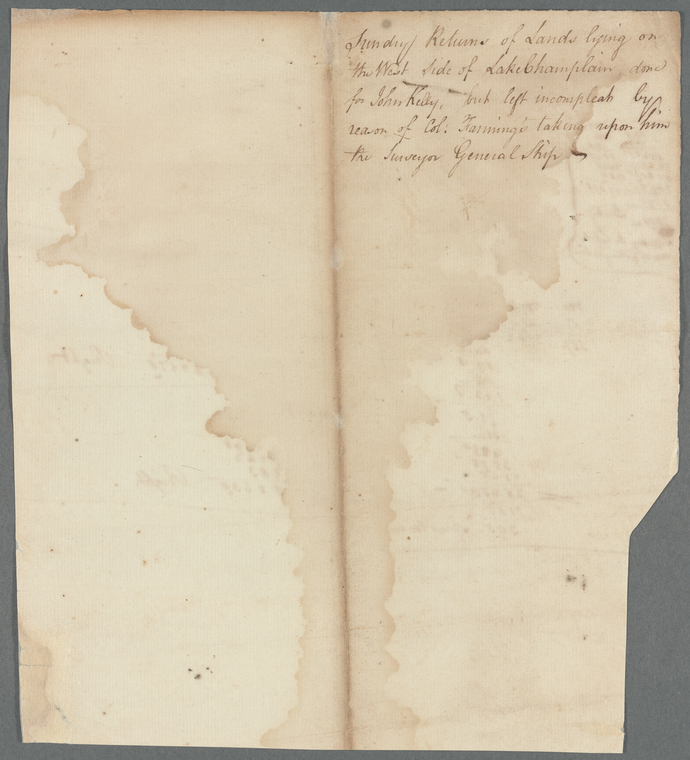 Sundry Returns of Lands lying on
the West side of Lake Champlain, done
for John Kelly, but left incompleat by
reason of Col: Fanning's taking upon him
the Surveyor General Ship